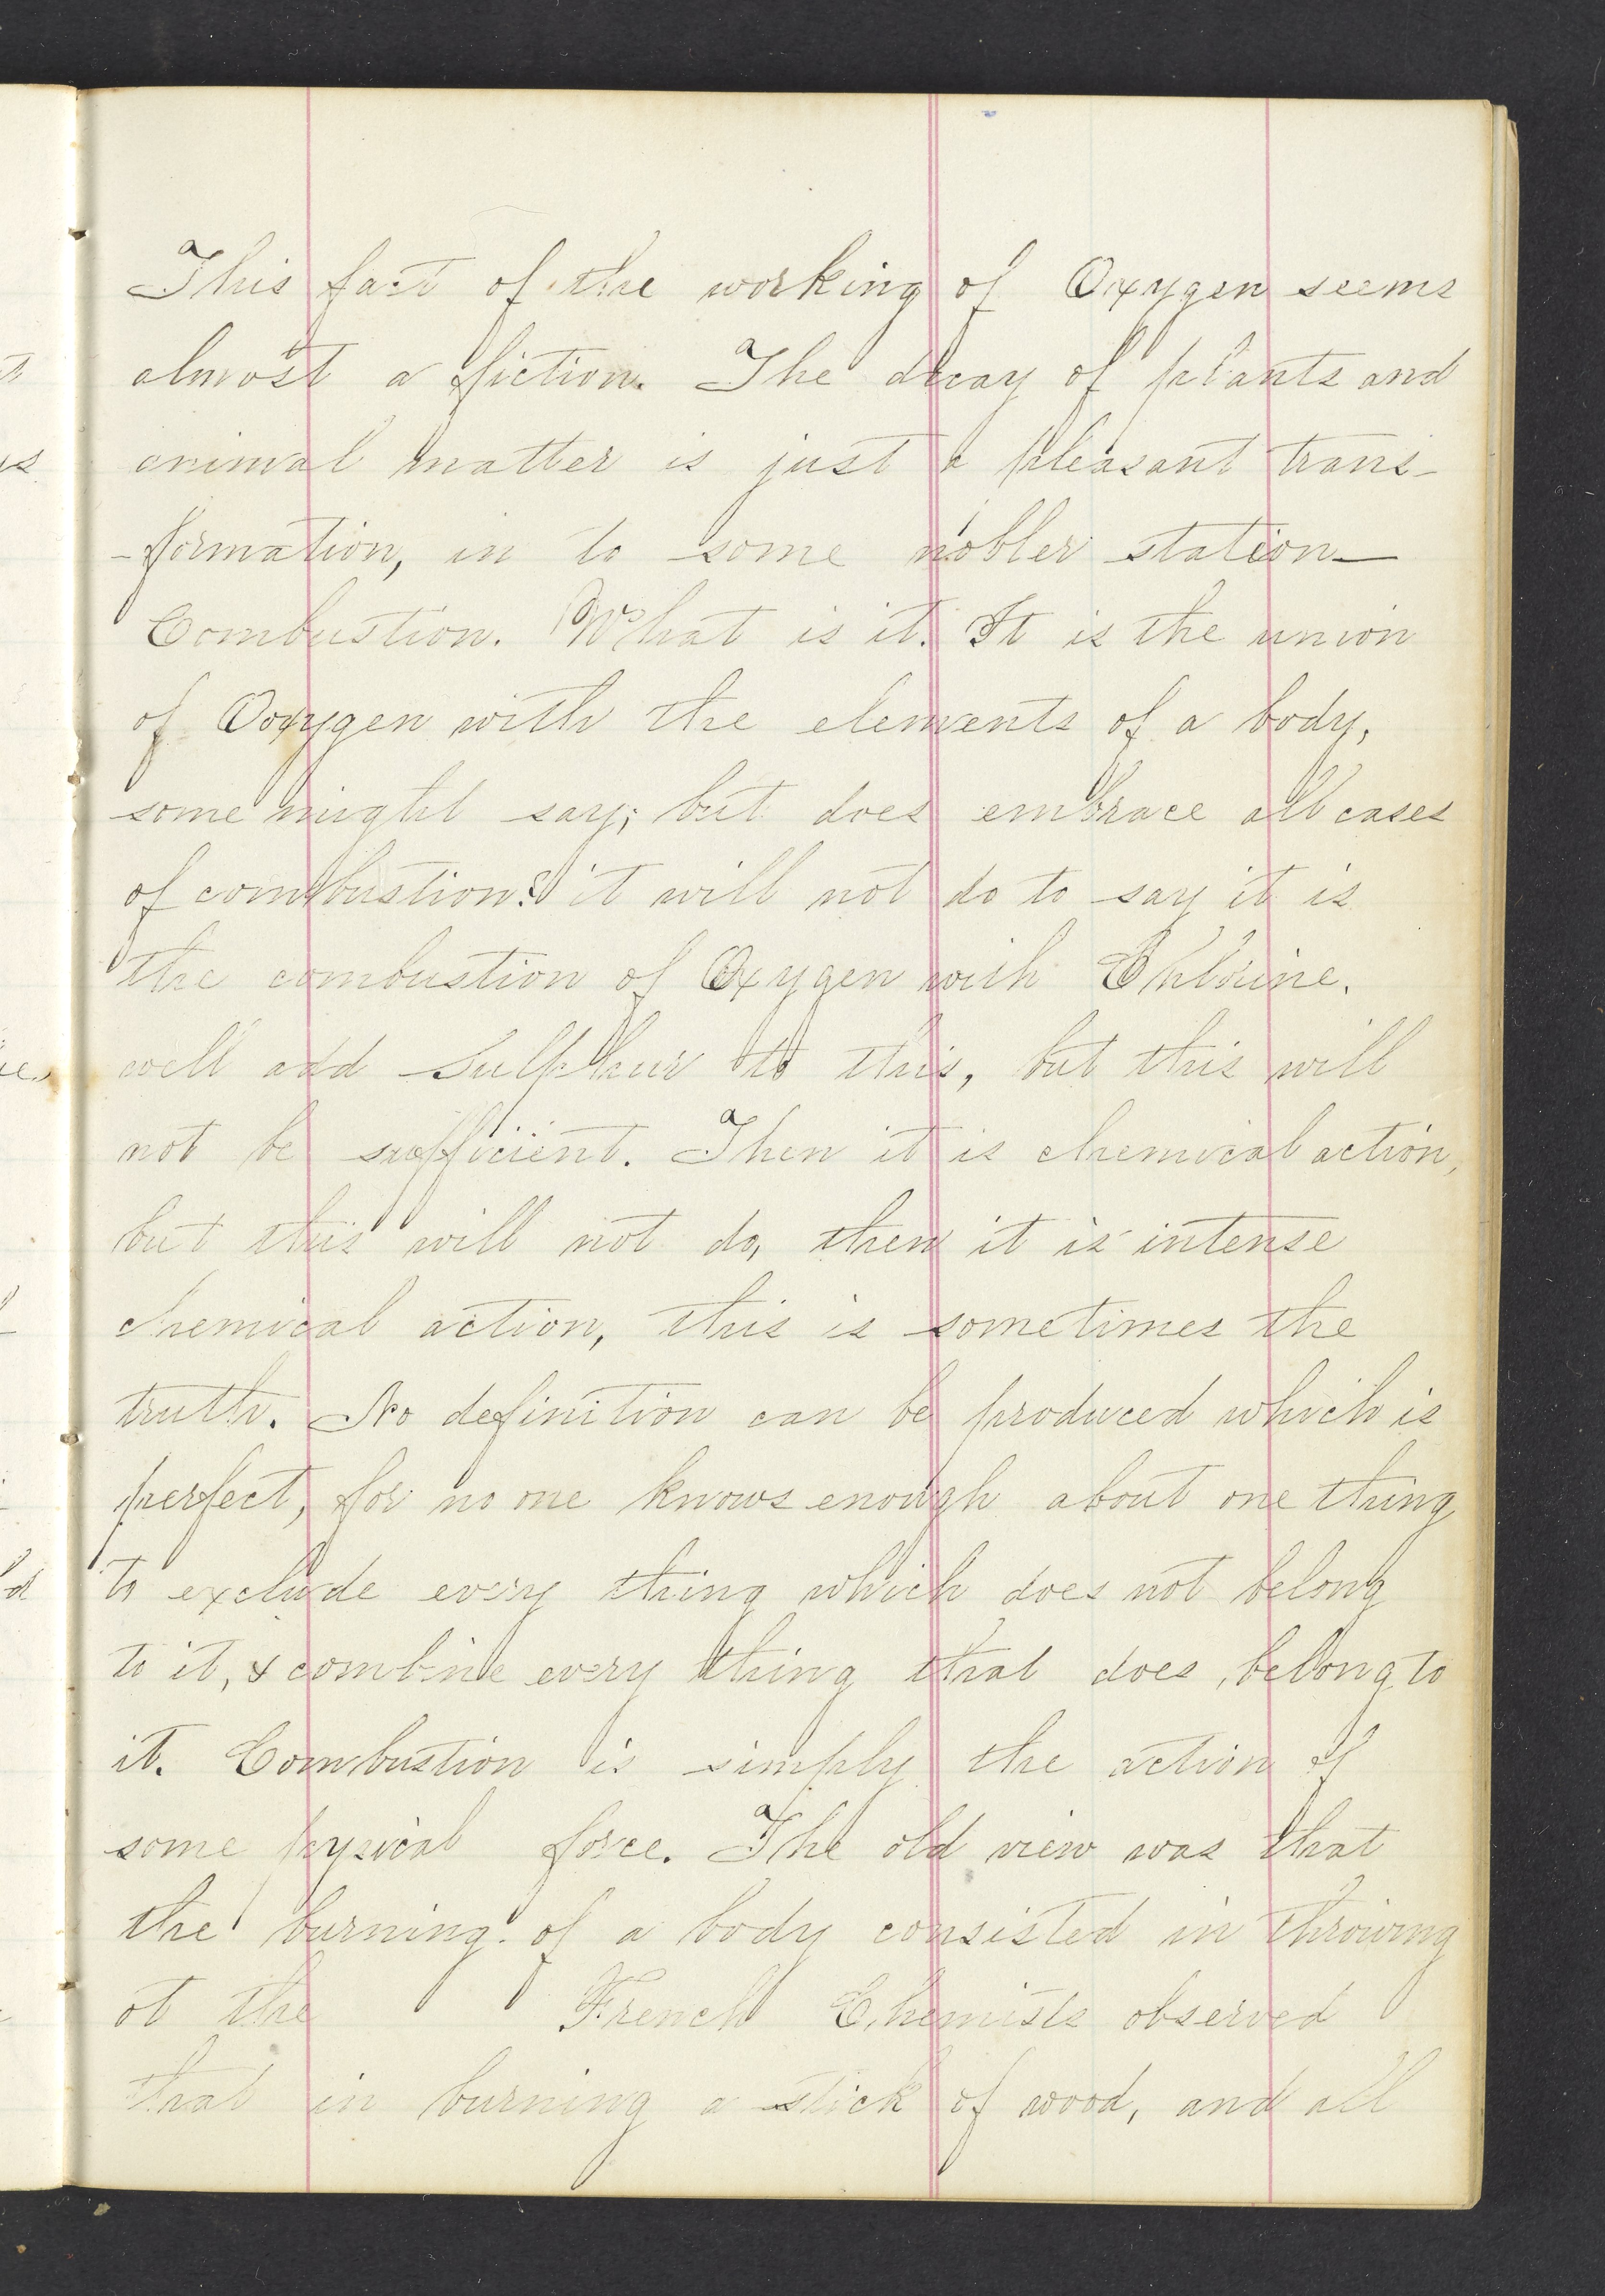 This fact of the working of Oxygen seems
almost a fiction. The decay of plants and
animal matter is just a pleasant trans-
-formation, in to some nobler station—
Combustion. What is it. It is the union
of Oxygen with the elements of a body,
some might say; but does embrace all cases
of combustion? it will not do to say it is
the combustion of Oxygen with Chlorine.
well add Sulphur to this, but this will
not be sufficient. Then it is chemical action,
but this will not do, then it is intense
chemical action, this is sometimes the
truth. No definition can be produced which is
perfect, for no one knows enough about one thing
to exclude every thing which does not belong
to it, & combine every thing that does, belong to
it. Combustion is simply the action of
some hysical force. The old view was that
the burning of a body consisted in throwing
ot the French Chemists observed
that in burning a stick of wood, and all